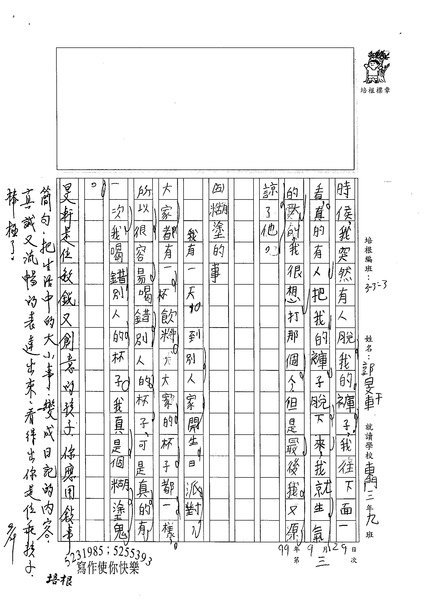 培根標章
培根編班：3-3-3
姓名：郭旻軒
就讀學校：東門三年九班
99年9月29日
第三次
時侯我突然有人脫我的褲子我往下面一
看真的有人把我的褲子脫下來我就生氣
的我很想打那個人但是最後我又原
諒了他
四糊塗的事
我有一天到別人家開生日派對
大家都有一杯飲料大家的杯子都一樣
所以很容易喝錯別人的杯子可是真的有
一次我喝錯別人的杯子我真是個糊塗鬼
。
旻軒是位敏銳又創意的孩子，你應用敘事
簡句，把生活中的大小事變成日記的內容，
真誠又流暢的表達出來，看得出你是位孩子，
棒極了
5231985；5255393
寫作使你快樂
培根